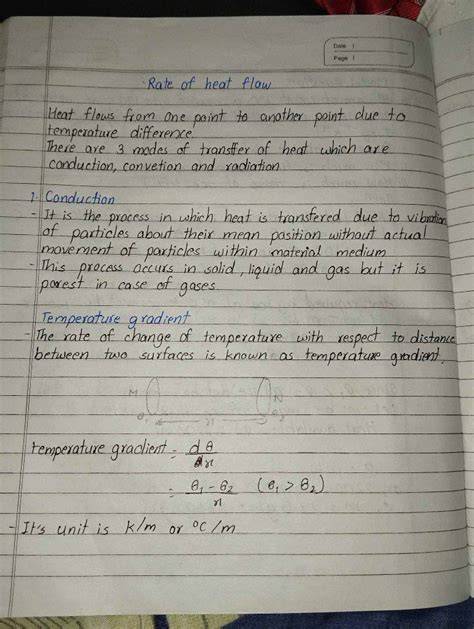 Date |
Page |
Rate of heat flow
Heat flows from one point to another point due to
temperature difference
There are 3 modes of transffer of heat which are
conduction, convetion and radiation
1. Conduction
- It is the process in which heat is transfered due to vibration
of particles about their mean position without actual
movement of particles within material medium
- This process occurs in solid, liquid and gas but it is
porest in case of gases
Temperature gradient
- The rate of change of temperature with respect to distance
between two surfaces is known as temperature gradient.
M N
temperature gradient = dθ/dx
= θ1 - θ2 / x (θ1 > θ2)
- It's unit is k/m or °C/m